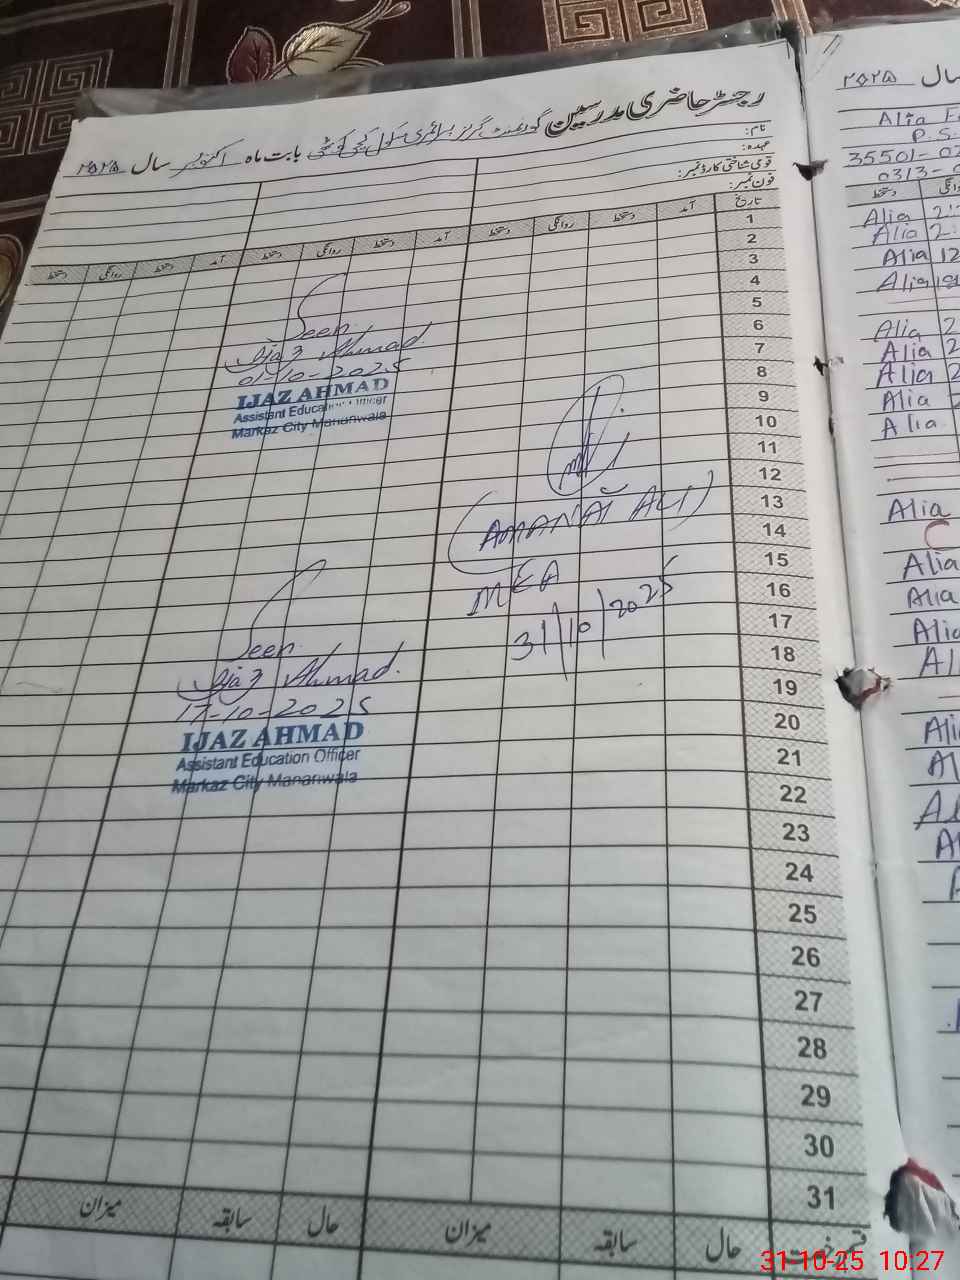 رجسٹر حاضری مدرسین گورنمنٹ گرلز پرائمری سکول بابت ماہ اکتوبر سال ۲۰۲۵
نام:
عہدہ:
قومی شناختی کارڈ نمبر:
فون نمبر:
تاریخ آمد دستخط روانگی دستخط آمد دستخط روانگی دستخط آمد دستخط روانگی دستخط
1
2
3
4
5
6
7
8
9
10
11
12
13
14
15
16
17
18
19
20
21
22
23
24
25
26
27
28
29
30
31
Seen
Ijaz Ahmad.
01-10-2025
IJAZ AHMAD
Assistant Education Officer
Markaz City Mananwala
(AMANAT ALI)
MEA
31/10/2025
Seen
Ijaz Ahmad.
17-10-2025
IJAZ AHMAD
Assistant Education Officer
Markaz City Mananwala
قسم رخصت حال سابقہ میزان حال سابقہ میزان
سال ۲۰۲۵
Alia
P.S.
35501-02
0313-0
Alia 2:
Alia 2:
Alia 12
Alia
Alia 2
Alia 2
Alia 2
Alia 2
Alia
Alia
Alia
Alia
Alia
31-10-25 10:27